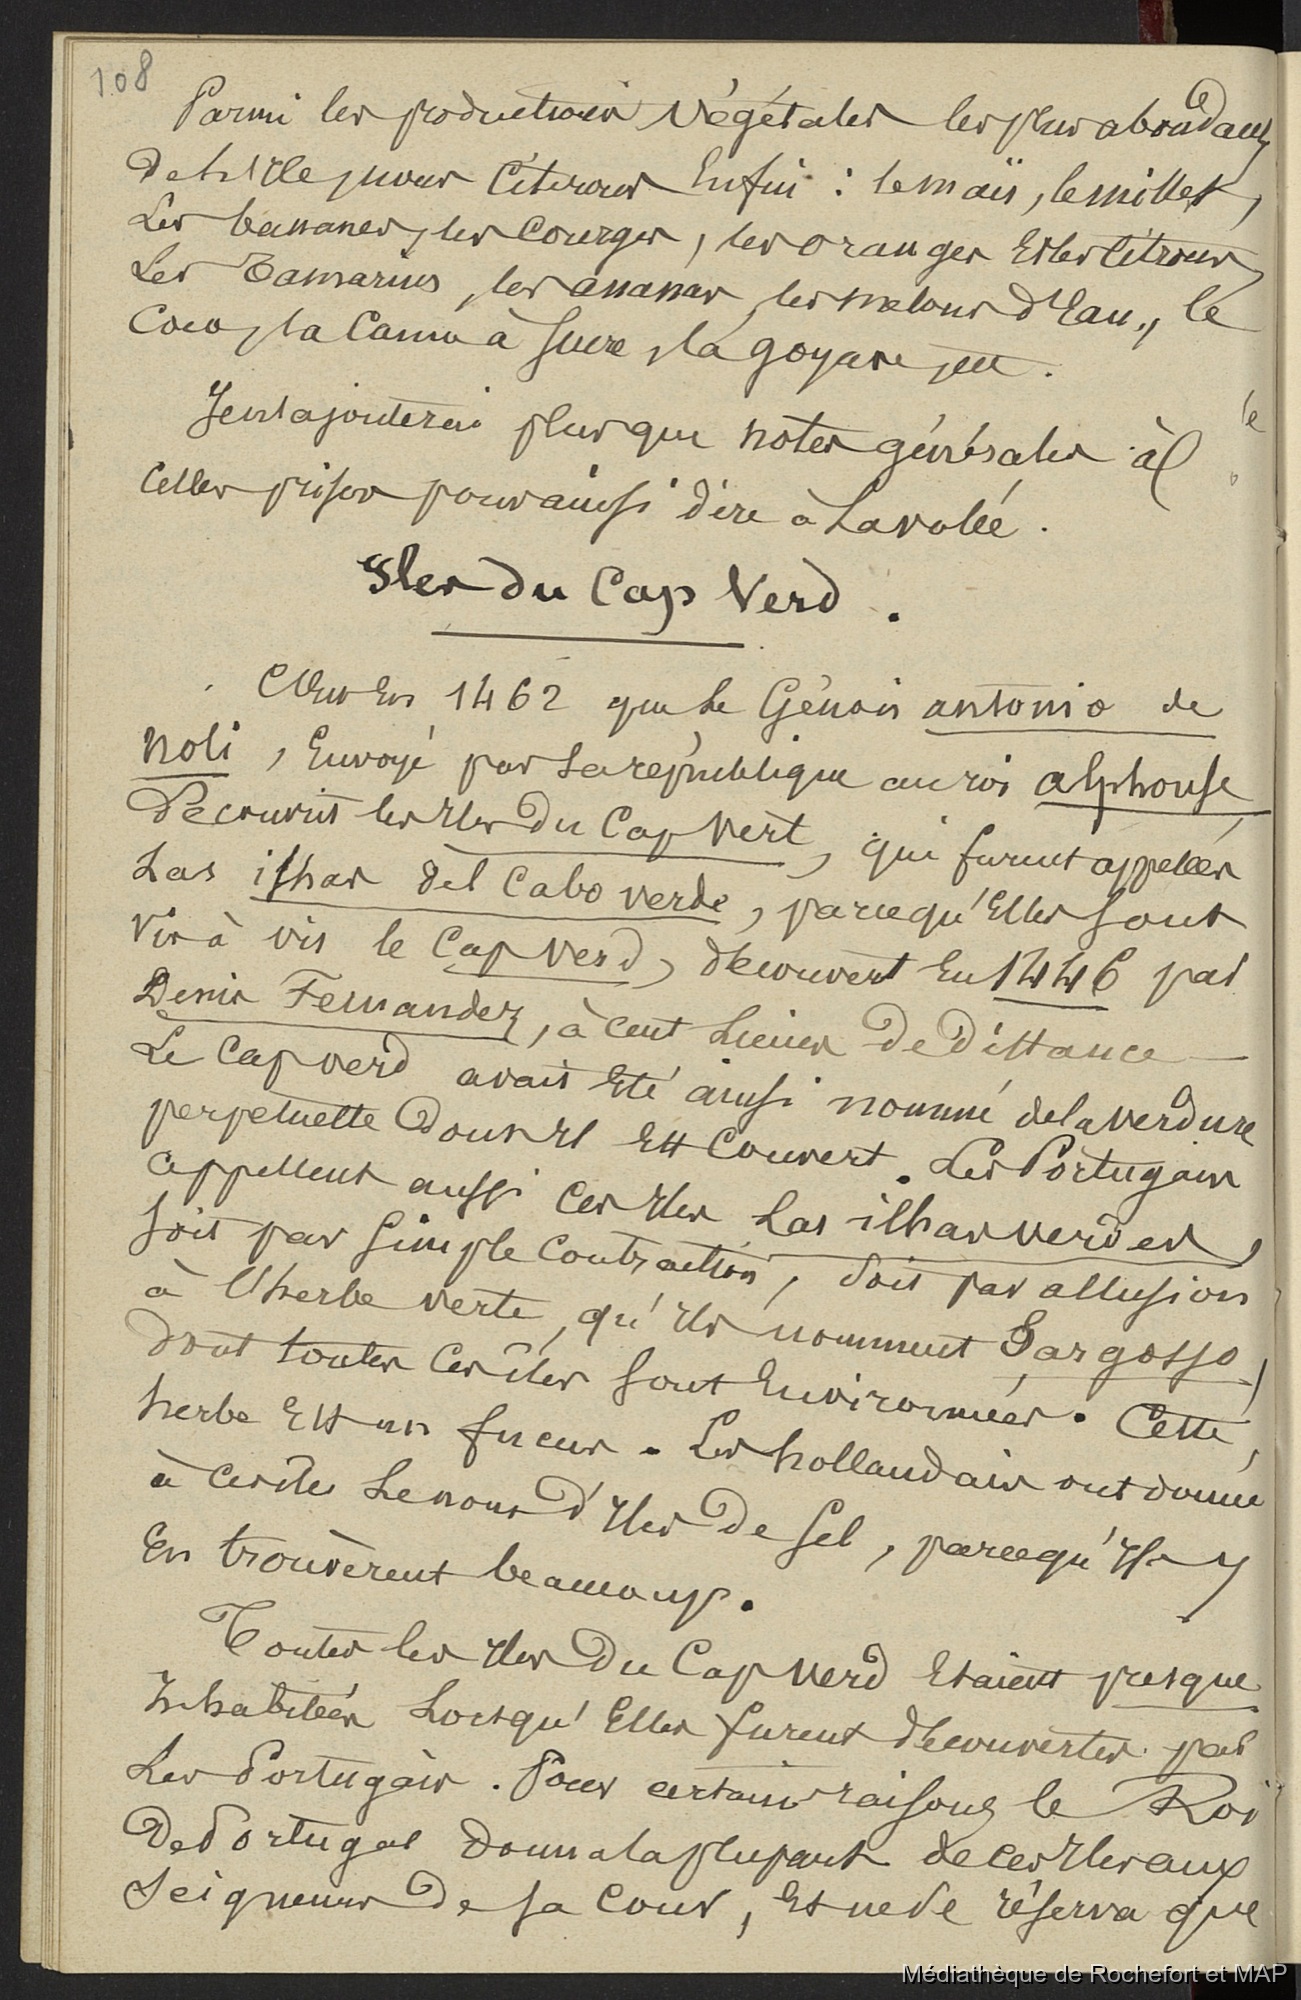 108
Parmi les productions végétales les plus abondantes
de l'Ile, nous citerons Enfin : le maïs, le millet,
Les bananes, les Courges, les oranges Et les Citrons,
Les Tamarins, les ananas, les melons d'Eau, le
Coco, la Canne à Sucre, la goyave, etc.
Je n'ajouterai plus que notes générales à
Celles prises pour ainsi dire à La volée.
Iles du Cap Verd.
C'est En 1462 que Le Génois antonio de
Noli, Envoyé par La république au roi alphonse
Découvrit les Iles du Cap Vert, qui furent appelées
Las ilhas del Cabo verde, parcequ'Elles sont
Vis à vis le Cap Verd, découvert En 1446 par
Denis Fernandez, à cent Lieues De Distance —
Le Cap verd avait Eté ainsi nommé de la verdure
perpetuelle Dont Il Est Couvert. Les Portugais
appellent aussi Ces Iles Las ilhas verdes,
soit par simple Contraction, soit par allusion
à l'herbe verte, qu'Ils nomment Sargosso,
dont toutes Ces îles sont Environnées. Cette
herbe Est un fucus. Les hollandais ont donné
à Ces îles Le nom d'Iles De Sel, parcequ'Ils y
En trouvèrent beaucoup.
Toutes les Iles Du Cap Verd Etaient presque
Inhabitées Lorsqu'Elles furent découvertes par
Les Portugais. Pour certains raisons le Roi
De Portugal donna la plupart de ces Iles aux
Seigneurs De sa Cour, Et ne se réserva que
Médiathèque de Rochefort et MAP